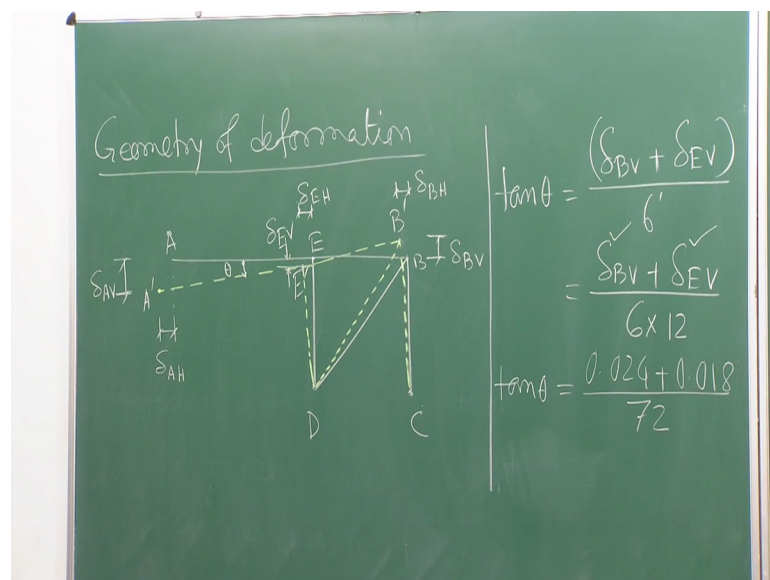 Geometry of deformation
δEH
δBH
δEV
A
E
B'
B
δBV
θ
δAV
A'
E'
δAH
D
C
tanθ = (δBV + δEV) / 6'
= δBV + δEV / 6 × 12
tanθ = 0.024 + 0.018 / 72